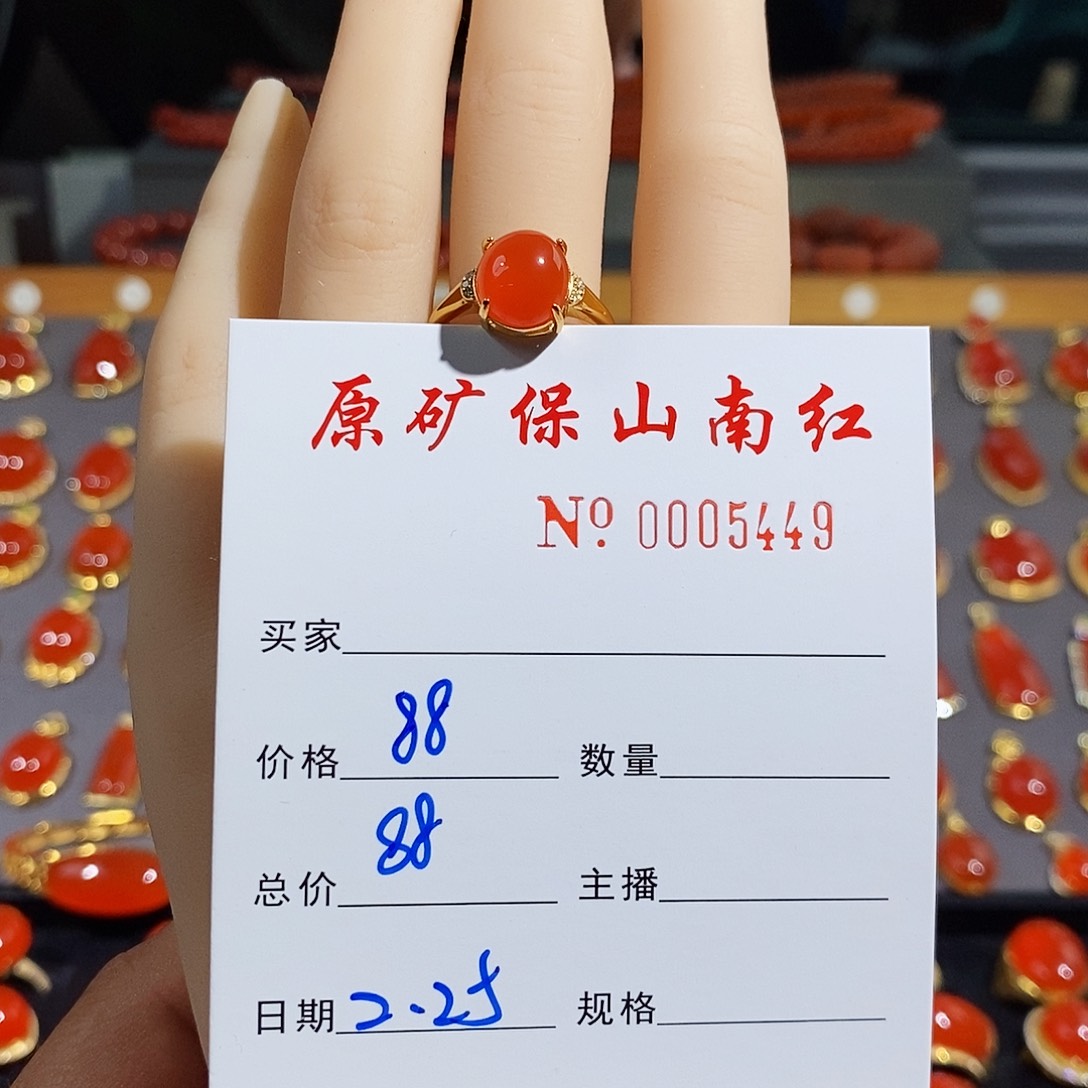 原矿保山南红
Nº 0005449
买家
价格 88 数量
总价 88 主播
日期 2.25 规格